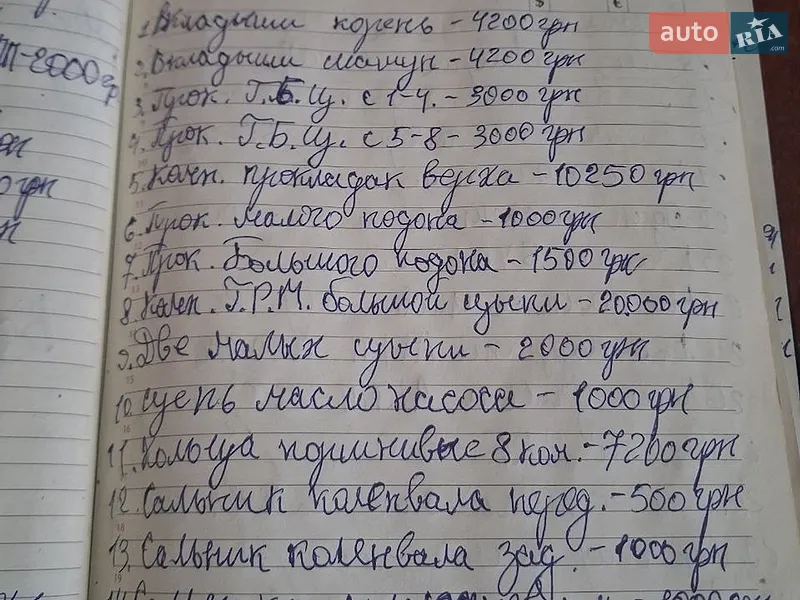 auto RIA .com
1. Вкладыши корень - 4200 грн
2. Вкладыши шатун - 4200 грн
3. Прок. Г.Б.Ц. с 1-4. - 3000 грн
4. Прок. Г.Б.Ц. с 5-8 - 3000 грн
5. Комп. прокладак верха - 10250 грн
6. Прок. малого подона - 1000 грн
7. Прок. Большого подона - 1500 грн
8. Комп. Г.Р.М. большой цыпи - 20000 грн
9. Две малых цыпи - 2000 грн
10. Цепь масло насоса - 1000 грн
11. Кольца поршнивые 8 кол. - 7200 грн
12. Сальник коленвала перед. - 500 грн
13. Сальник коленвала зад. - 1000 грн
- 2000 гр
0 грн